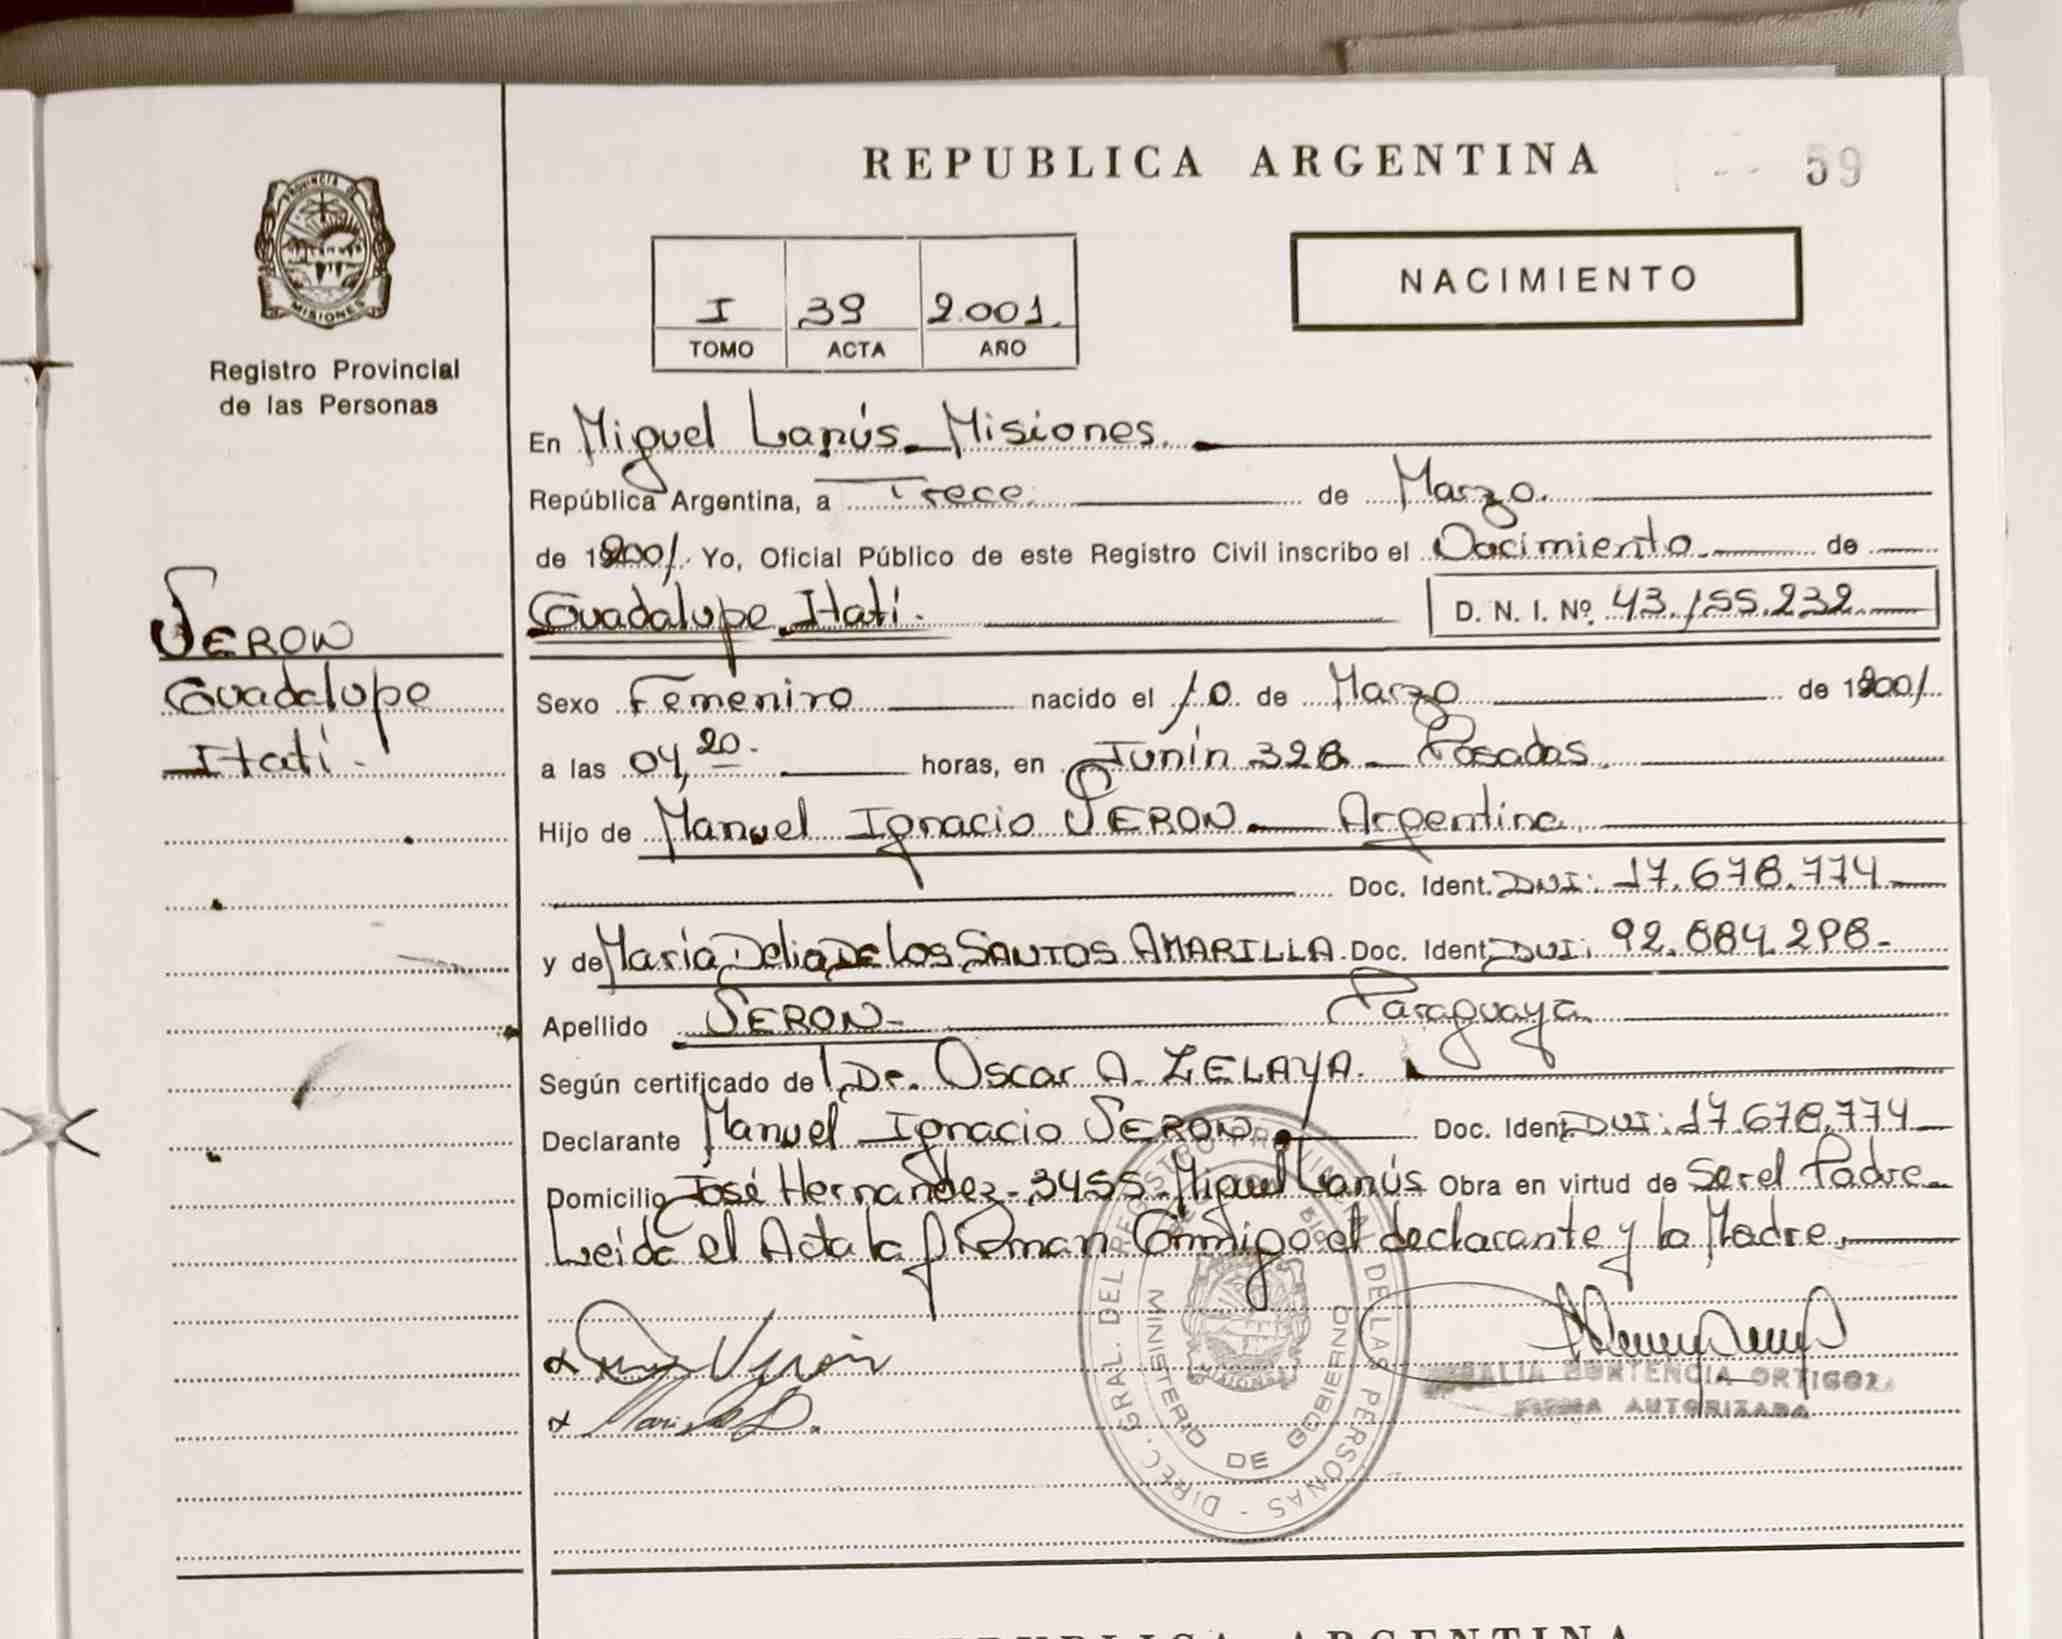 REPUBLICA ARGENTINA
59
PROVINCIA DE
MISIONES
Registro Provincial
de las Personas
I 39 2.001.
TOMO ACTA AÑO
NACIMIENTO
En Miguel Lanús - Misiones.
República Argentina, a Trece. de Marzo.
de 1 2001. Yo, Oficial Público de este Registro Civil inscribo el Nacimiento de
Guadalupe Itatí. D. N. I. Nº 43.155.232.
SERON
Guadalupe
Itatí.
Sexo Femenino nacido el 10 de Marzo de 1 2001.
a las 04,20. horas, en Junín 328 - Posadas.
Hijo de Manuel Ignacio SERON. Argentina.
Doc. Ident. DNI: 17.678.774
y de María Delia DE LOS SANTOS AMARILLA. Doc. Ident. DNI: 92.684.298.
Apellido SERON- Paraguaya.
Según certificado del Dr. Oscar A. ZELAYA.
Declarante Manuel Ignacio SERON Doc. Ident. DNI: 17.678.774
Domicilio José Hernandez - 3455 - Miguel Lanús Obra en virtud de Ser el Padre
Leída el Acta la firman Conmigo el declarante y la Madre.
DIREC. GRAL. DEL REGISTRO PROVINCIAL DE LAS PERSONAS -
MINISTERIO DE GOBIERNO
ORTIGOZA
FIRMA AUTORIZADA
REPUBLICA ARGENTINA